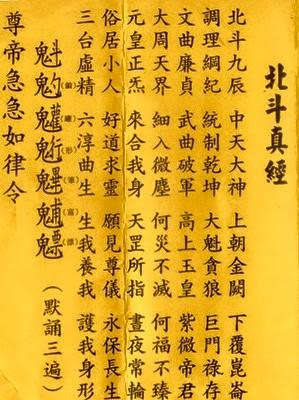 北斗真經
北斗九辰 中天大神 上朝金闕 下覆崑崙
調理綱紀 統制乾坤 大魁貪狼 巨門祿存
文曲廉貞 武曲破軍 高上玉皇 紫微帝君
大周天界 細入微塵 何災不滅 何福不臻
元皇正炁 來合我身 天罡所指 晝夜常輪
俗居小人 好道求靈 願見尊儀 永保長生
三台虛精 六淳曲生 生我養我 護我身形
魁䰢魓魒 (默誦三遍)
尊帝急急如律令